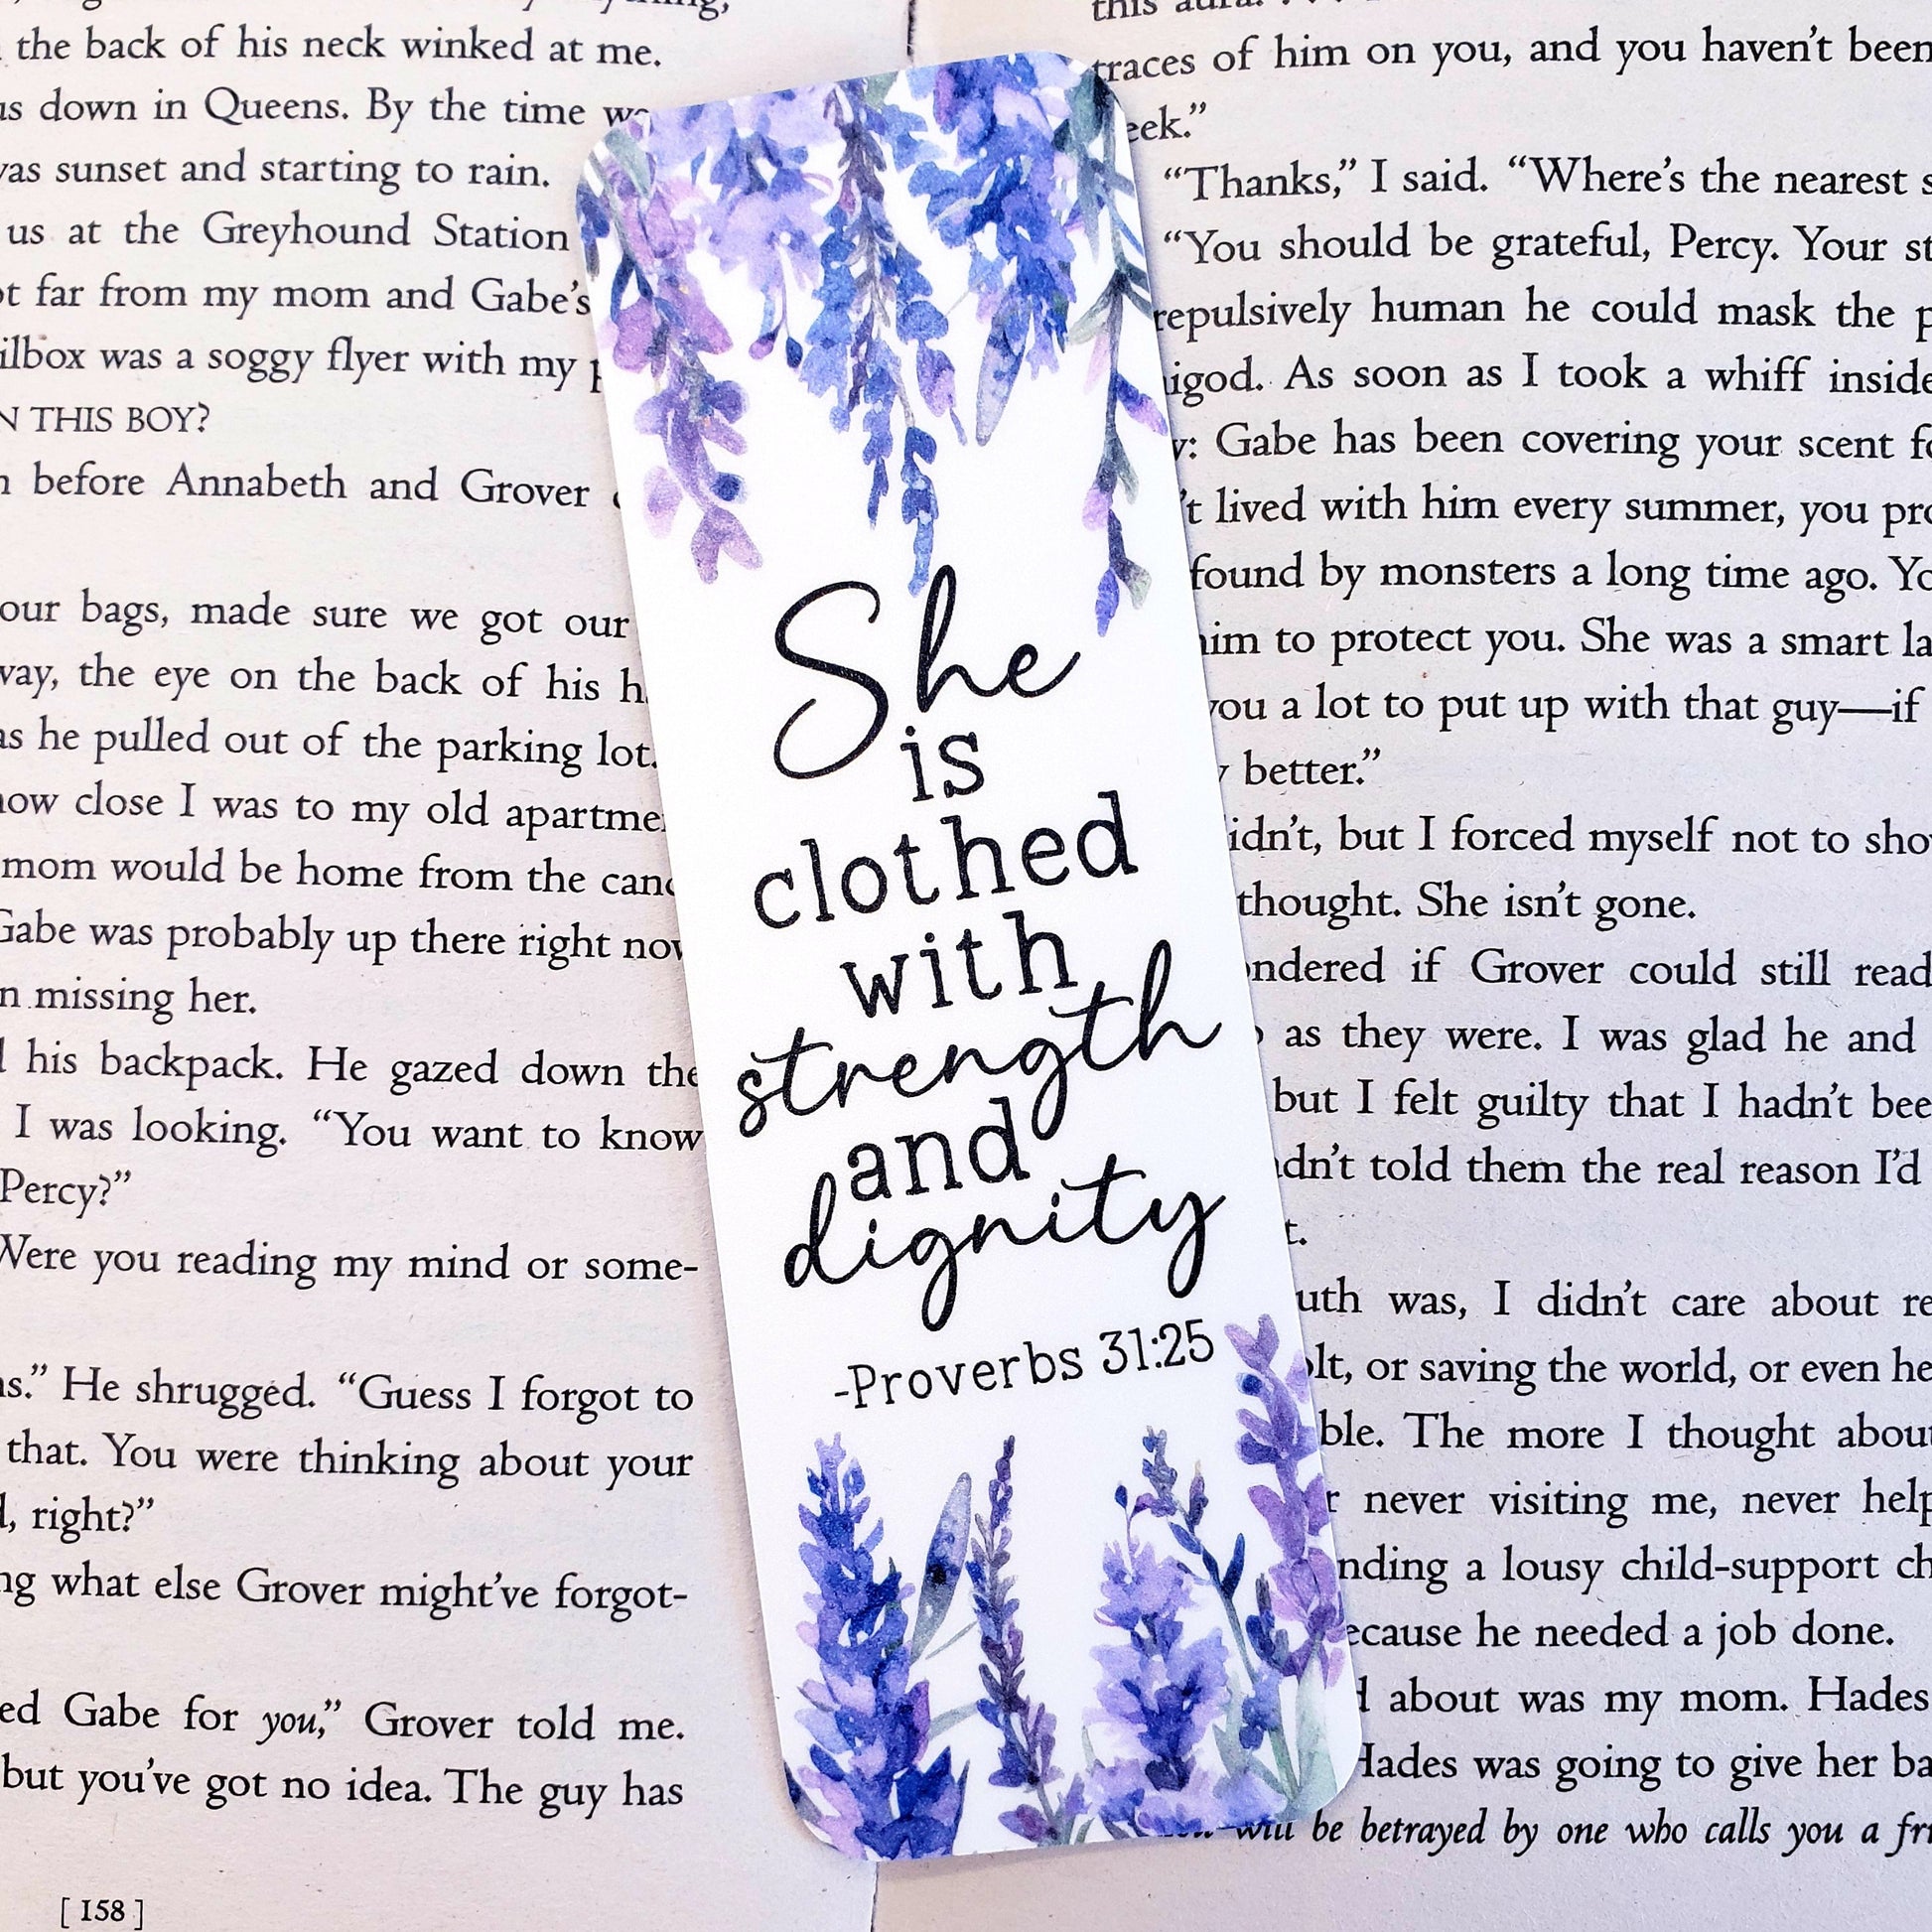 the back of his neck winked at me.
down in Queens. By the time
was sunset and starting to rain.
us at the Greyhound Station
far from my mom and Gabe's
was a soggy flyer with my
THIS BOY?
before Annabeth and Grover
our bags, made sure we got our
the eye on the back of his
as he pulled out of the parking lot.
how close I was to my old
mom would be home from the
Gabe was probably up there right
missing her.
his backpack. He gazed down the
I was looking. “You want to know
Percy?”
Were you reading my mind or some-
He shrugged. “Guess I forgot to
that. You were thinking about your
right?”
what else Grover might've forgot-
Gabe for you,” Grover told me.
but you've got no idea. The guy has
[ 158 ]
She
is
clothed
with
strength
and
dignity
-Proverbs 31:25
this
traces of him on you, and you haven't been
“Thanks,” I said. “Where's the nearest
“You should be grateful, Percy. Your
repulsively human he could mask the
As soon as I took a whiff inside
Gabe has been covering your scent
lived with him every summer, you
found by monsters a long time ago.
him to protect you. She was a smart
you a lot to put up with that guy—if
better.”
but I forced myself not to
thought. She isn't gone.
if Grover could still read
as they were. I was glad he and
but I felt guilty that I hadn't
told them the real reason I'd
was, I didn't care about
or saving the world, or even
The more I thought about
never visiting me, never
a lousy child-support
because he needed a job done.
about was my mom. Hades
Hades was going to give her
will be betrayed by one who calls you a